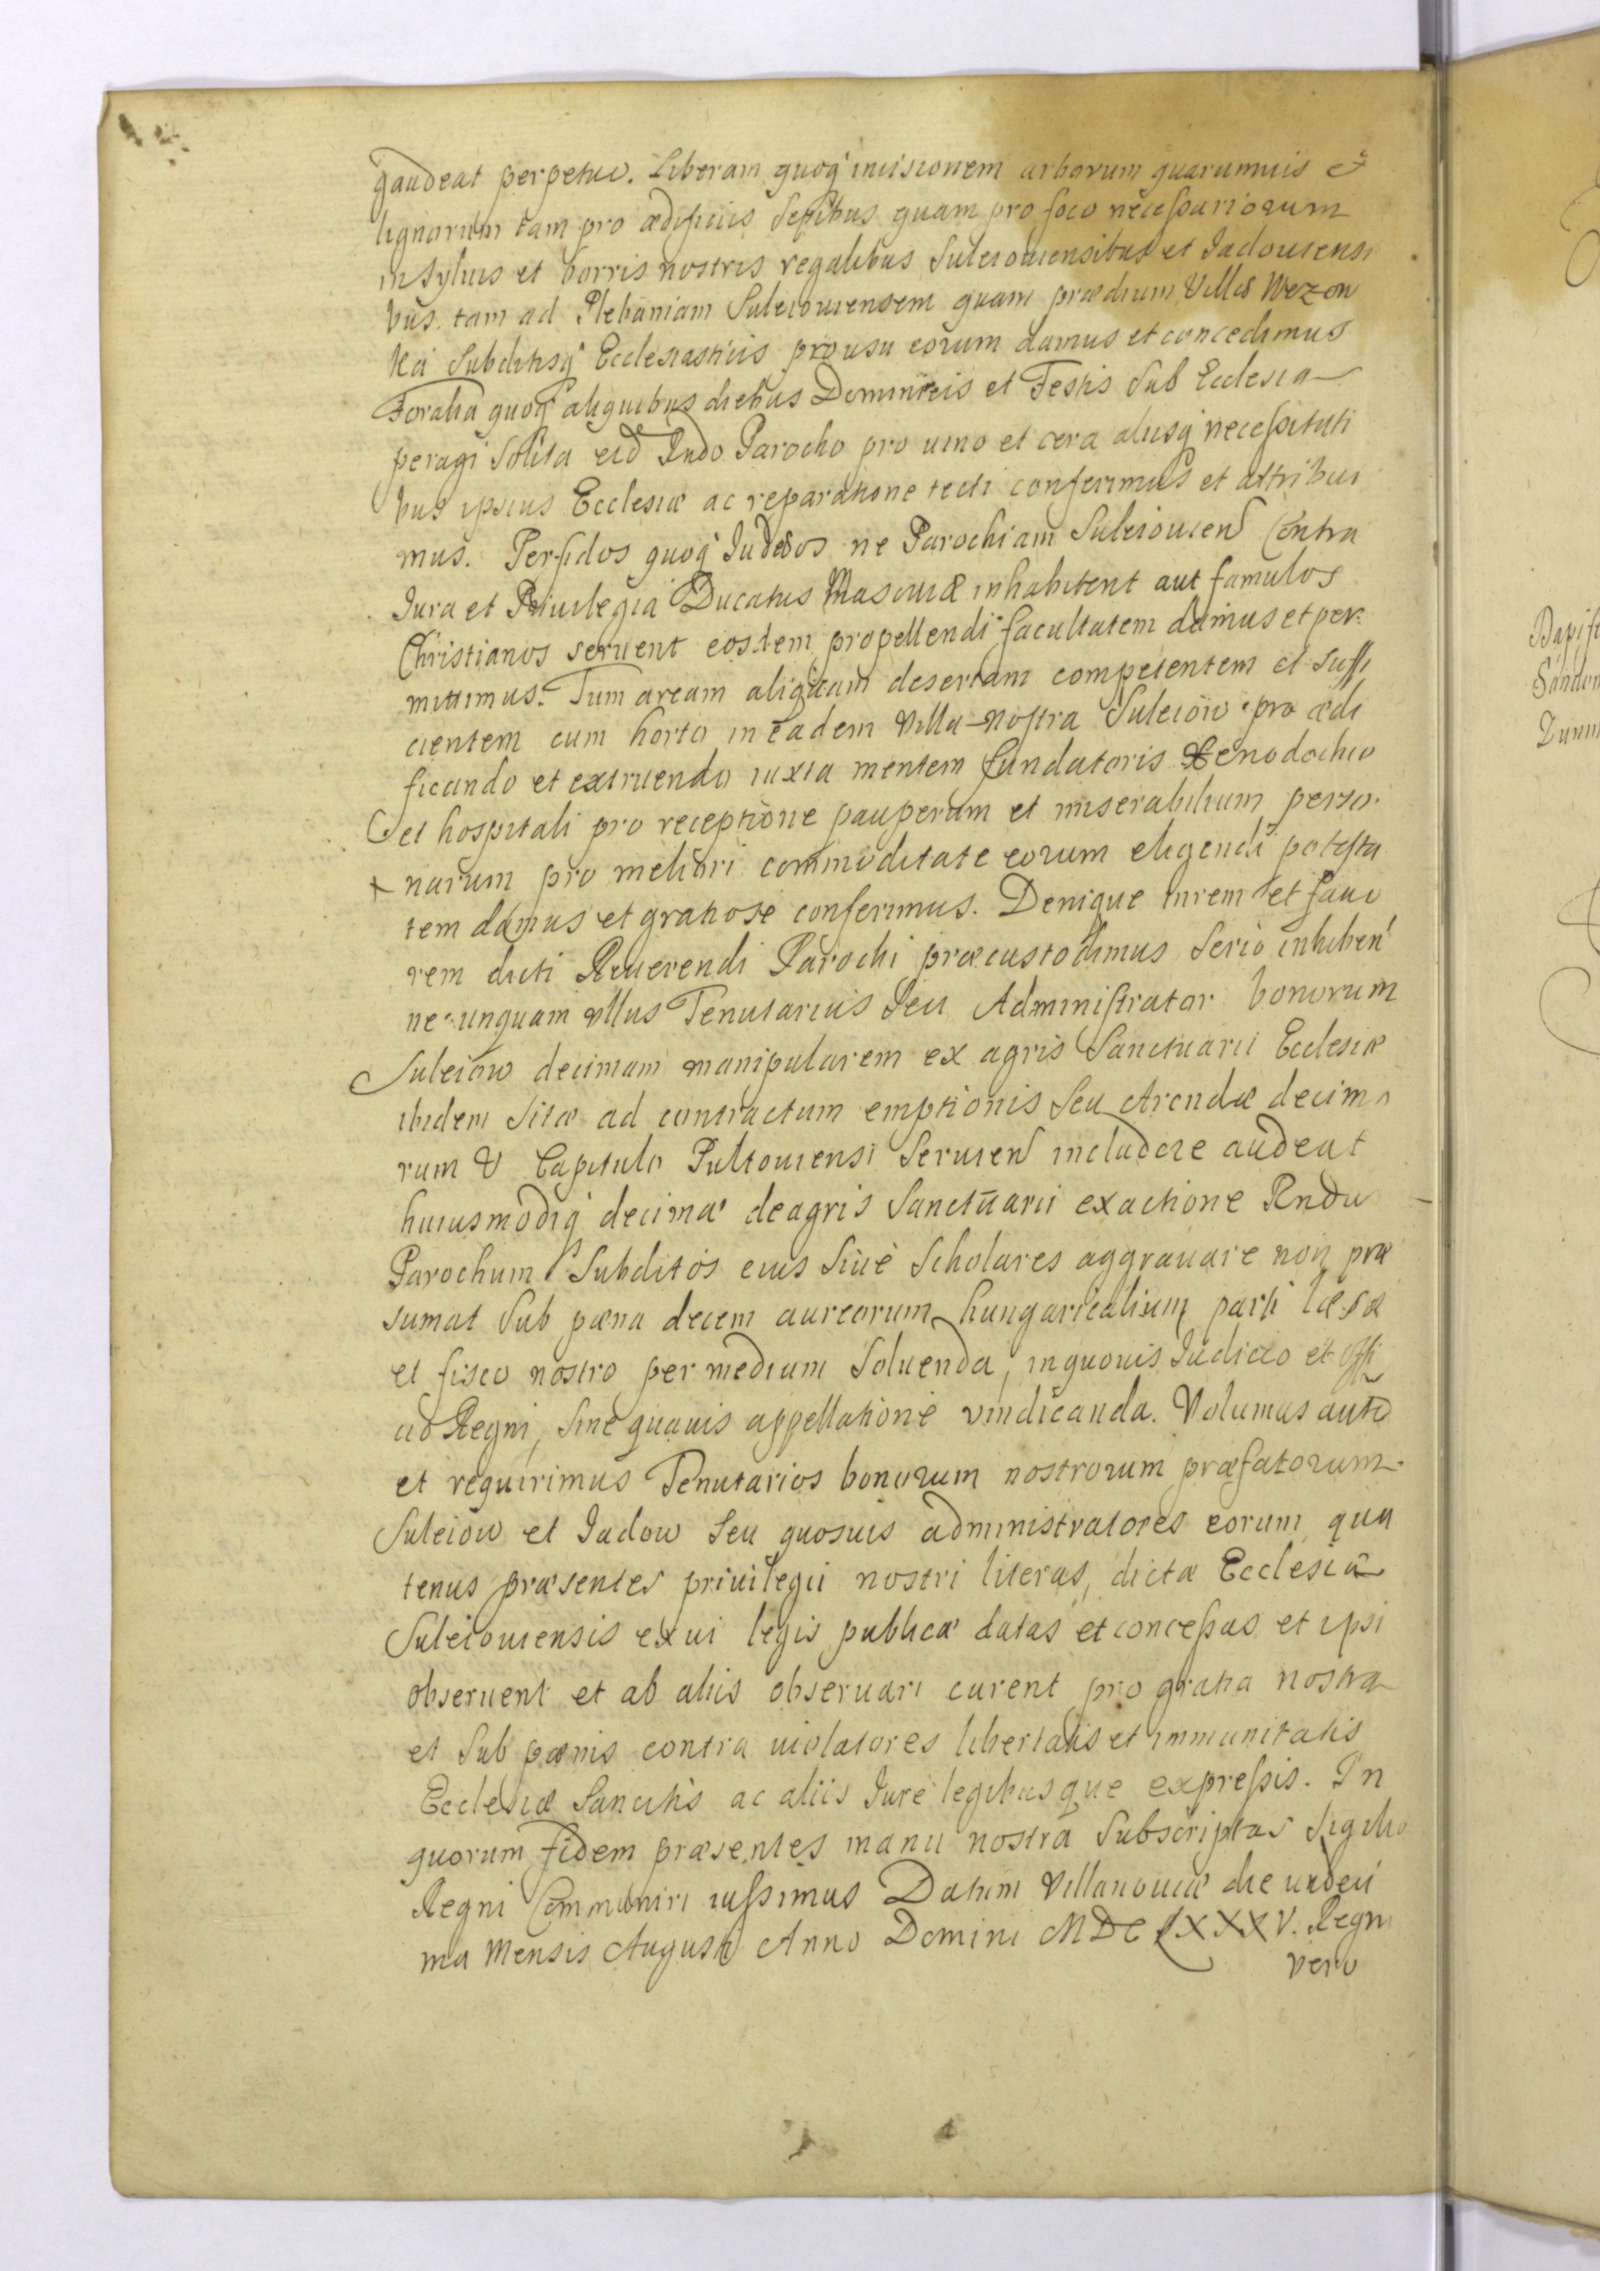 gaudeat perpetuo. Liberam quoq́ incisionem arborum quarumuis et
lignorum tam pro ædificiis Sepibus quam pro foco necessariorum
in syluis et borris nostris regalibus Suleiouiensibus et Jadouiensi
bus tam ad Plebaniam Suleiouiensem quam prædium Villæ Wezow
ka Subditisq́ Ecclesiasticis pro usu eorum damus et concedimus
Foralia quoq́ aliquibus diebus Dominicis et Festis Sub Ecclesia
peragi Solita eid Rndo Parocho pro uino et cera aliisq́ necessitati
bus ipsius Ecclesiæ ac reparatione tecti conferimus et attribui
mus. Perfidos quoq́ Judæos ne Parochiam Suleiouien Contra
Jura et Priuilegia Ducatus Masouiæ inhabitent aut famulos
Christianos seruent eosdem propellendi facultatem damus et per
mittimus. Tum aream aliquam desertam competentem et suffi
cientem cum horto in eadem Villa Nostra Suleiow pro ædi
ficando et extruendo iuxta mentem fundatoris Xenodochio
et hospitali pro receptione pauperum et miserabilium perso
narum pro meliori commoditate eorum eligendi potesta
tem damus et gratiose conferimus. Denique in rem et fauo
rem dicti Reuerendi Parochi præcustodimus Serio inhiben
ne unquam ullus Tenutarius Seu Administrator bonorum
Suleiow decimam manipularem ex agris Sanctuarii Ecclesiæ
ibidem Sitæ ad contractum emptionis Seu Arendæ decima
rum V Capitulo Pultouiensi Seruien includere audeat
huiusmodiq́ decimæ de agris Sanctuarii exactione Rndu
Parochum Subditos eius Siue Scholares aggrauare non præ
sumat Sub pæna decem aureorum hungaricalium parti læsæ
et fisco nostro per medium Soluenda, in quouis Judicio et Offi
cio Regni, Sine quauis appellatione vindicanda. Volumus aute
et requirimus Tenutarios bonorum nostrorum præfatorum
Suleiow et Jadow Seu quosuis administratores eorum qua
tenus præsentes priuilegii nostri literas, dictæ Ecclesiæ
Suleiouiensis ex ui legis publicæ datas et concessas et ipsi
obseruent et ab aliis obseruari curent pro gratia nostra
et Sub pænis contra uiolatores libertatis et immunitatis
Ecclesiæ Sancitis ac aliis Jure legibusque expressis. In
quorum fidem præsentes manu nostra Subscriptas Sigillo
Regni Communiri iussimus Datum Villanouiæ die undeci
ma Mensis Augusti Anno Domini MDCLXXXV. Regni
vero